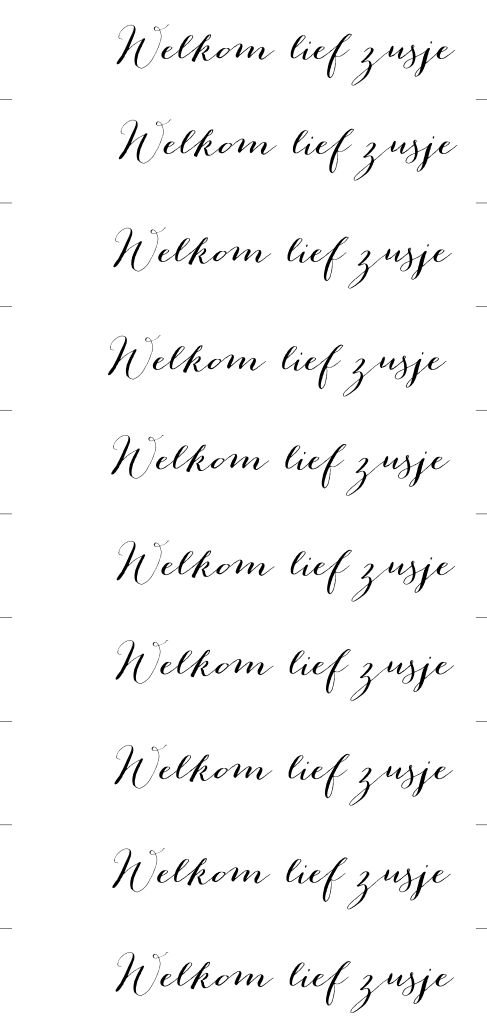 Welkom lief zusje
Welkom lief zusje
Welkom lief zusje
Welkom lief zusje
Welkom lief zusje
Welkom lief zusje
Welkom lief zusje
Welkom lief zusje
Welkom lief zusje
Welkom lief zusje